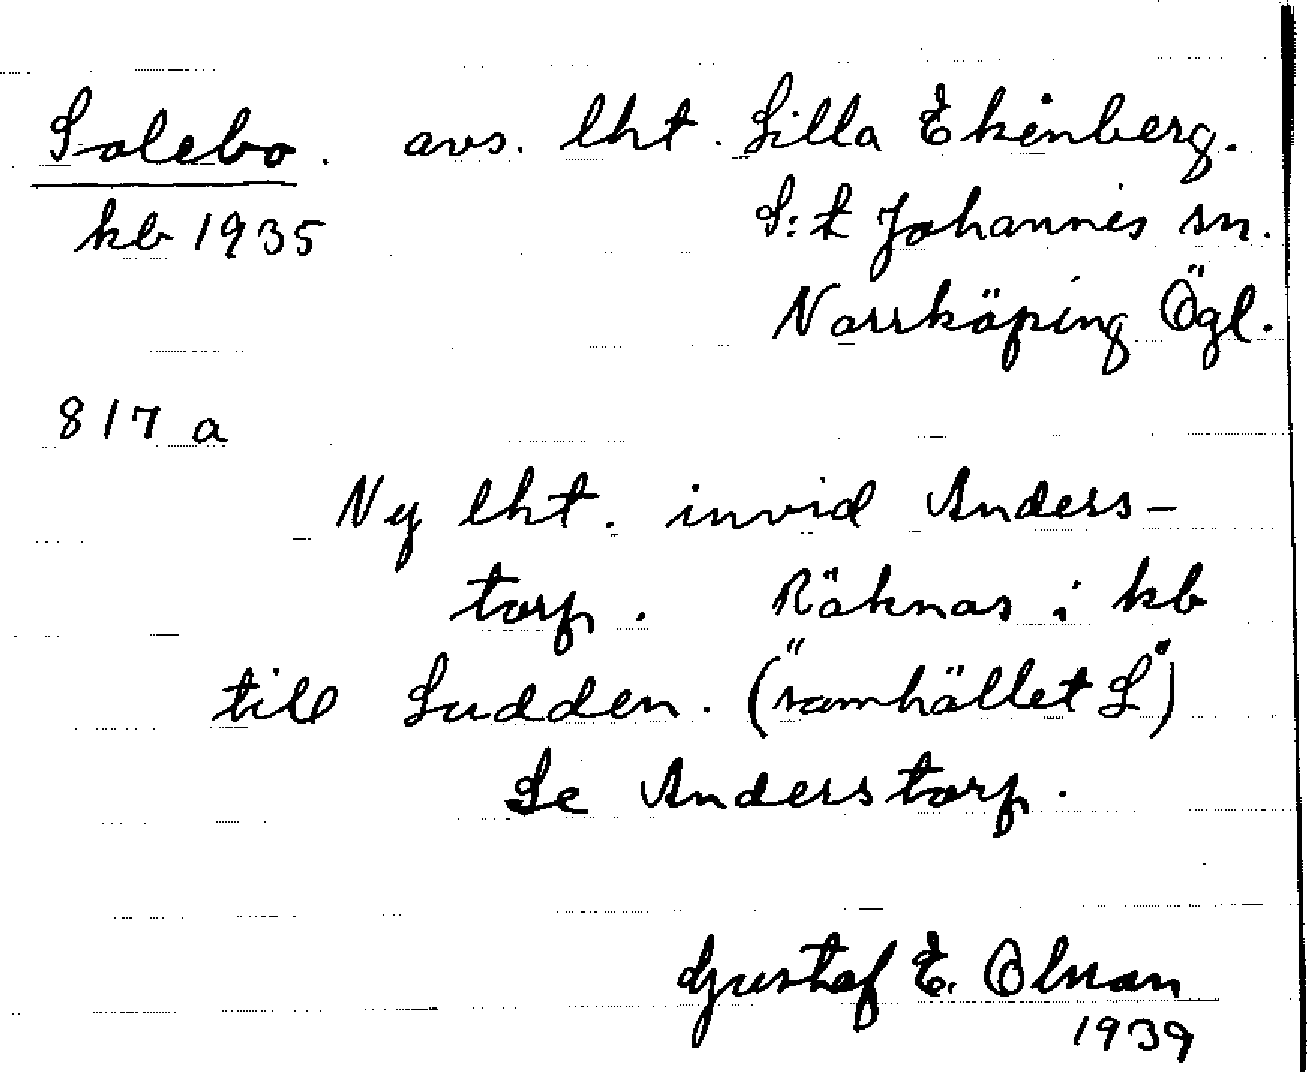 Solebo. avs. lht. Lilla Ekenberg.
kb 1935 S:t Johannes sn.
Norrköping Ögl.
817 a
Ny lht. invid Anders-
torp. Räknas i kb
till Sudden. ("samhället S")
Se Anderstorp.
Gustaf E. Olman
1939